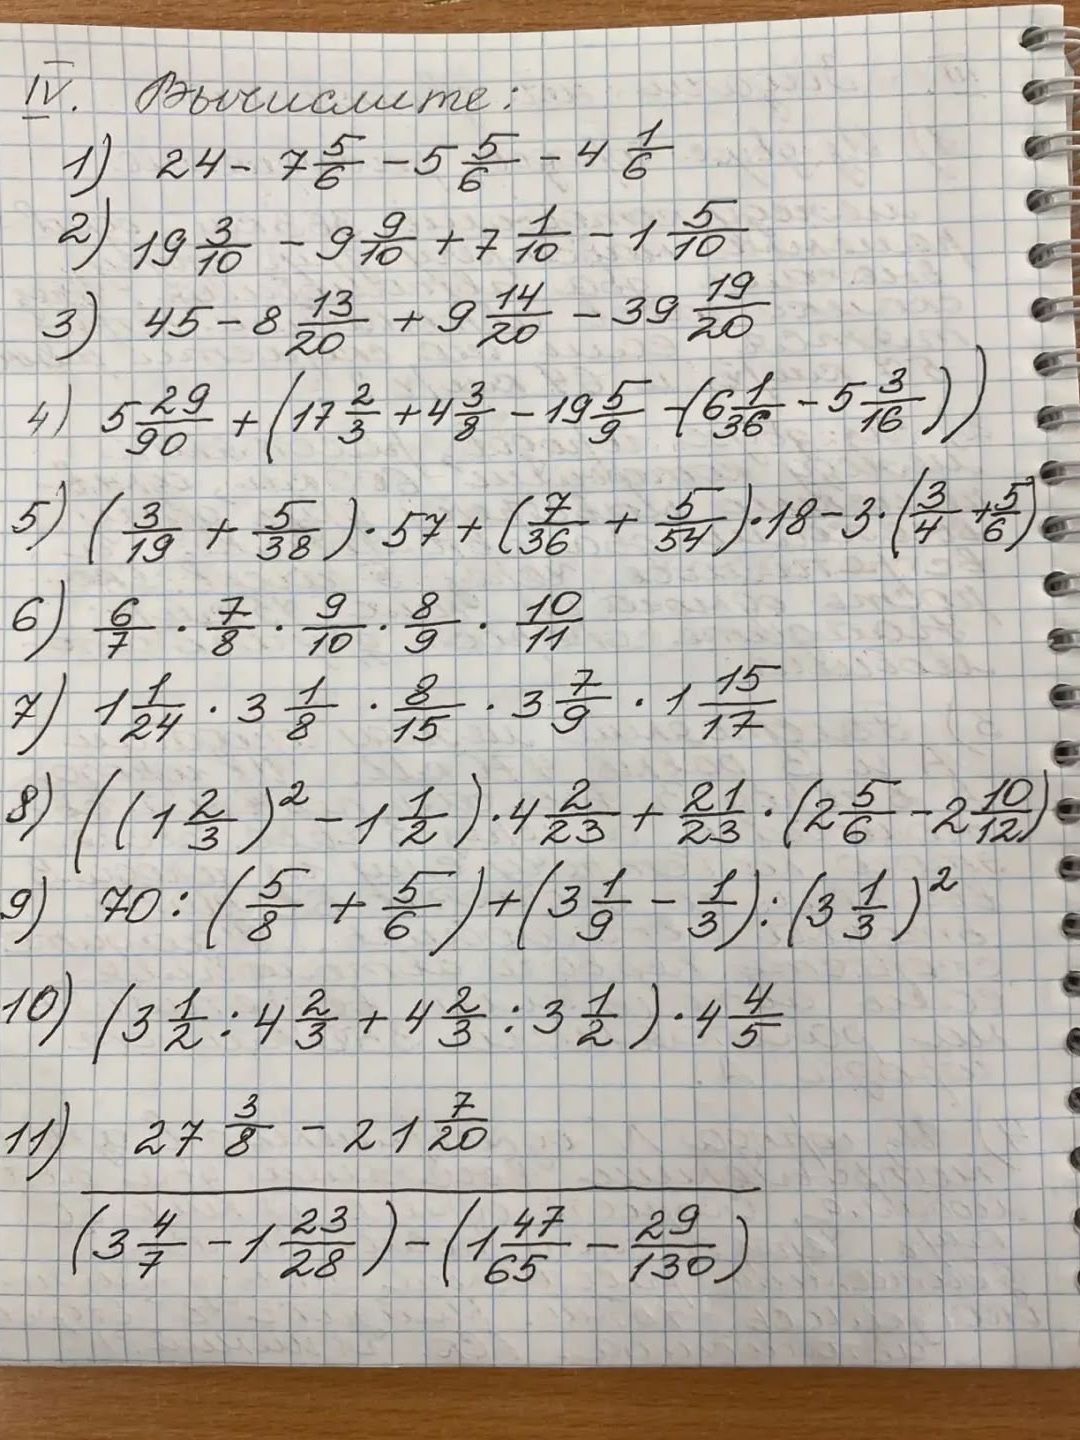 IV. Вычислите:
1) 24 - 7 5/6 - 5 5/6 - 4 1/6
2) 19 3/10 - 9 9/10 + 7 1/10 - 1 5/10
3) 45 - 8 13/20 + 9 14/20 - 39 19/20
4) 5 29/90 + (17 2/3 + 4 3/8 - 19 5/9 - (6 1/36 - 5 3/16))
5) (3/19 + 5/38) · 57 + (7/36 + 5/54) · 18 - 3 · (3/4 + 5/6)
6) 6/7 · 7/8 · 9/10 · 8/9 · 10/11
7) 1 1/24 · 3 1/8 · 8/15 · 3 7/9 · 1 15/17
8) ((1 2/3)² - 1 1/2) · 4 2/23 + 21/23 · (2 5/6 - 2 10/12)
9) 70 : (5/8 + 5/6) + (3 1/9 - 1/3) : (3 1/3)²
10) (3 1/2 : 4 2/3 + 4 2/3 : 3 1/2) · 4 4/5
11) 27 3/8 - 21 7/20
(3 4/7 - 1 23/28) - (1 47/65 - 29/130)